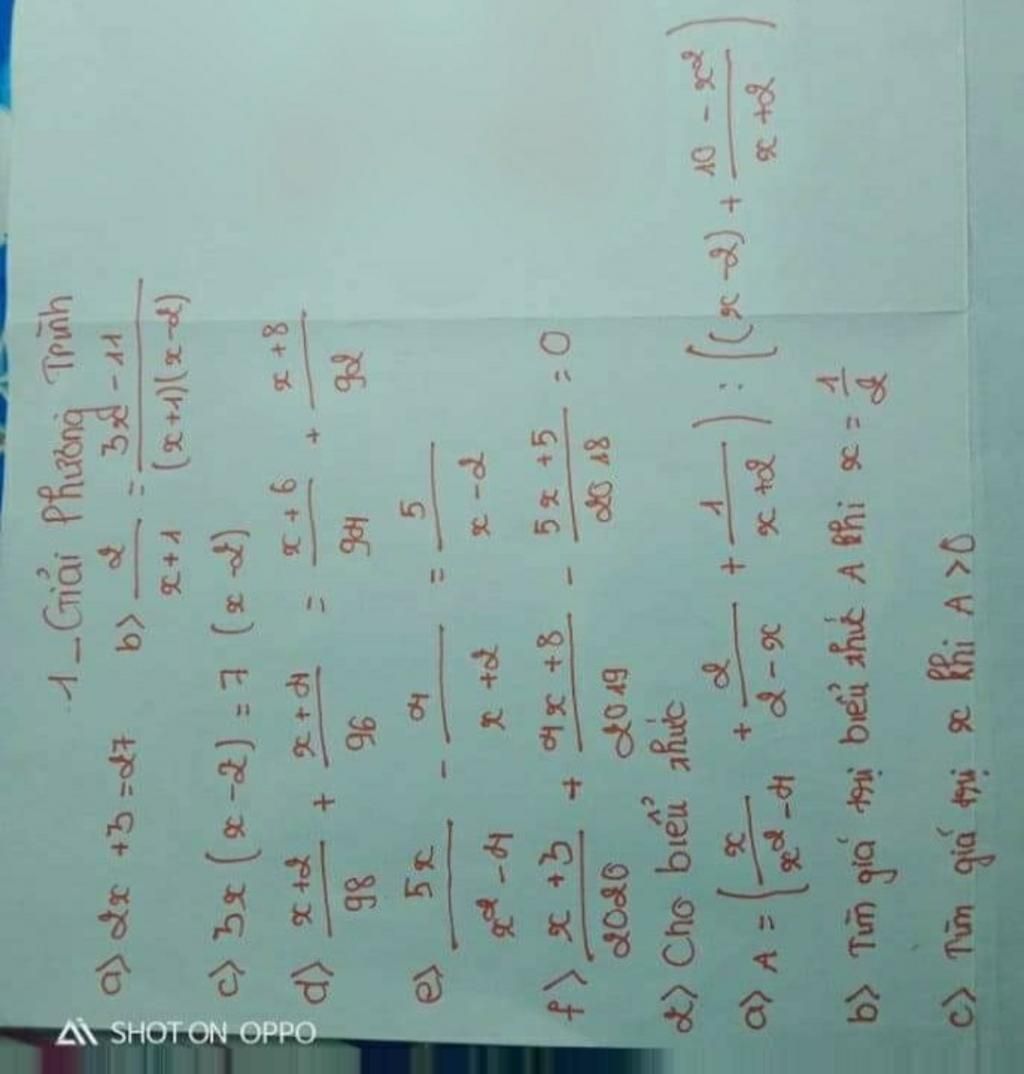 1_Giải Phương Trình
a) 2x + 3 = 27 b) 2/(x+1) = (3x - 11)/((x+1)(x-2))
c) 3x(x-2) = 7(x-2)
d) (x+2)/98 + (x+4)/96 = (x+6)/94 + (x+8)/92
e) 5x/(x²-4) - 4/(x+2) = 5/(x-2)
f) (x+3)/2020 + (4x+8)/2019 - (5x+5)/2018 = 0
2) Cho biểu thức
a) A = (x/(x²-4) + 2/(2-x) + 1/(x+2)) : ((x-2) + (10-x²)/(x+2))
b) Tìm giá trị biểu thức A khi x = 1/2
c) Tìm giá trị x khi A > 0
SHOT ON OPPO